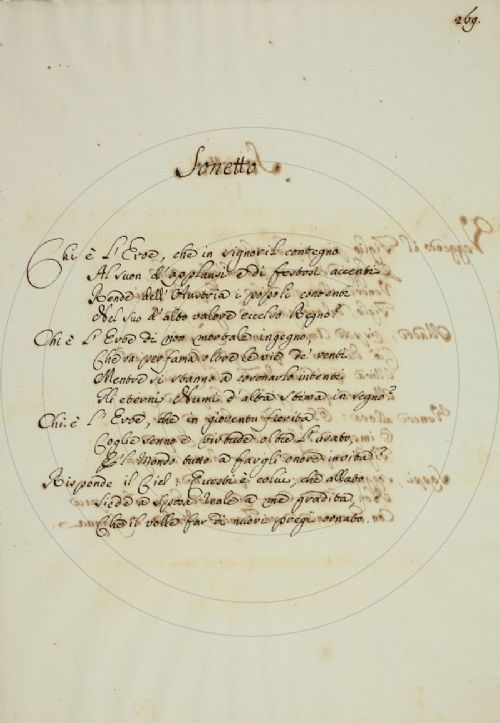 269.
Sonetto
Chi è L'Eroe, che in signoril contegno
Al suon d'applausi e di festosi accenti
Rende dell'Austria i popoli contenti
Nel suo d'alto valore eccelso Regno?
Chi è L'Eroe di non mortale ingegno,
Che va per fama oltre le vie de' venti
Mentre si stanno a coronarlo intenti
Gli eterni Numi d'alta stima in segno?
Chi è L'Eroe, che in gioventù fiorita
Coglie senno e virtude oltre L'usato,
E'l Mondo tutto a fargli onore invita?
Risponde il Ciel: Questi è colui, che allato
Siede a sposa Reale a me gradita,
Che il volle far di nuovi pregi ornato.